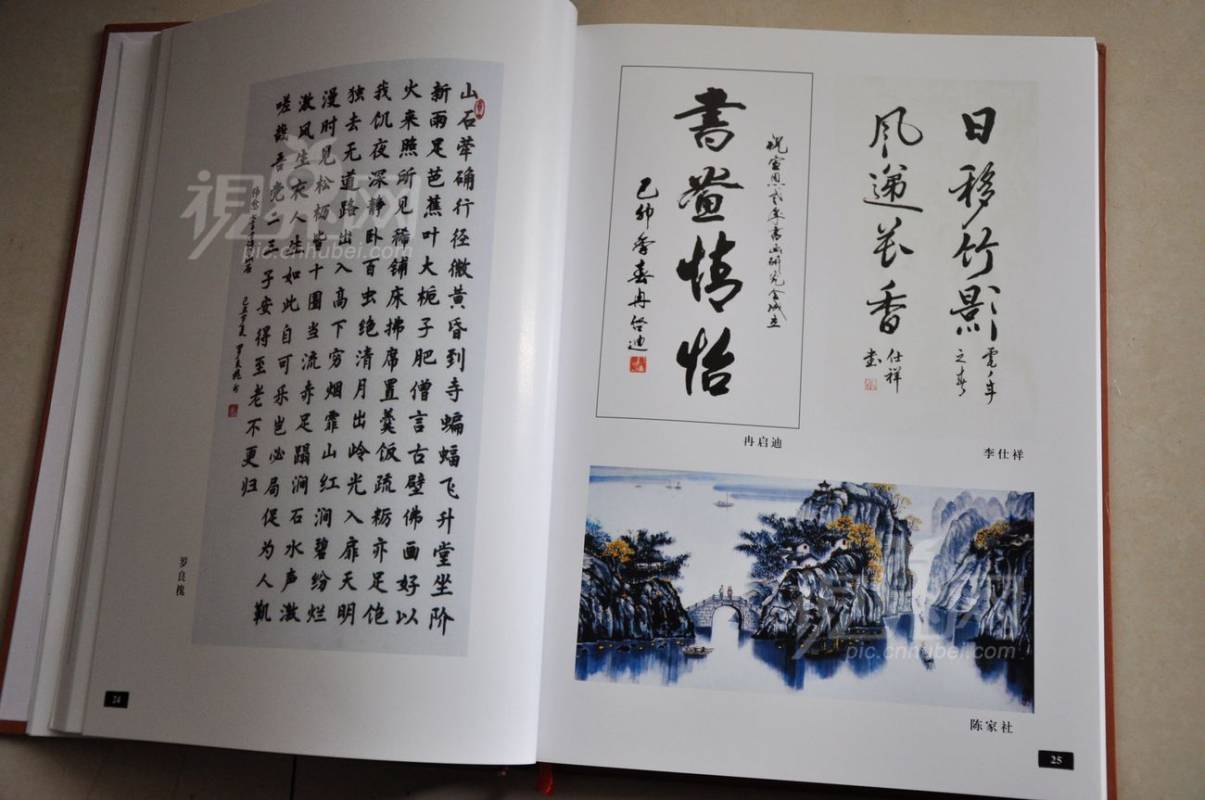 山石荦确行径微黄昏到寺蝙蝠飞升堂坐阶
新雨足芭蕉叶大栀子肥僧言古壁佛画好以
火来照所见稀铺床拂席置羹饭疏粝亦足饱
我饥夜深静卧百虫绝清月出岭光入扉天明
独去无道路出入高下穷烟霏山红涧碧纷烂
漫时见松枥皆十围当流赤足蹋涧石水声激
激风生衣人生如此自可乐岂必局促为人靰
嗟哉吾党二三子安得至老不更归
罗良槐
24
祝宣恩贰季书画研究会成立
書畫情怡
己卯季春冉启迪
冉启迪
日移竹影
风递花香
仕祥
李仕祥
陈家社
25
視界网
pic.cnhubei.com
視界网
pic.cnhubei.com